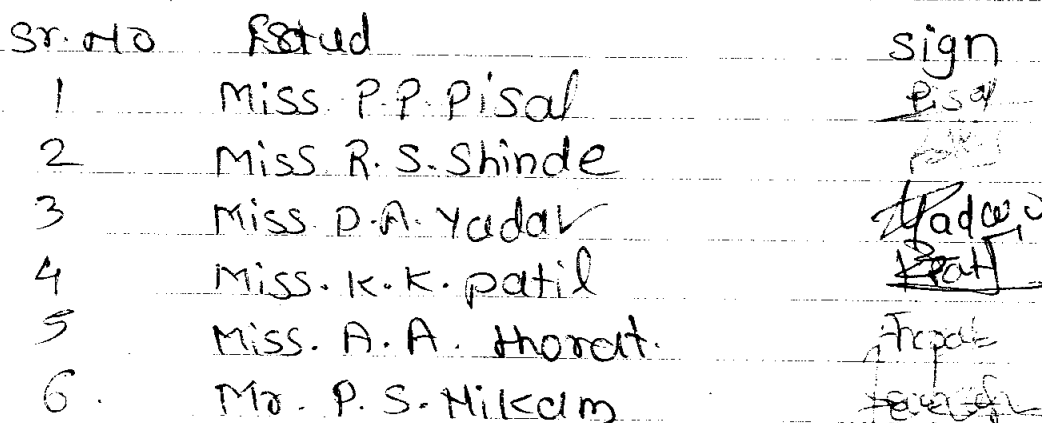 Sr. No Stud sign
1 Miss P.P. Pisal Pisal
2 Miss R. S. Shinde
3 Miss D.A. Yadav Yadav
4 Miss. K. K. patil
5 Miss. A. A. thorat.
6. Mr. P. S. Nikam